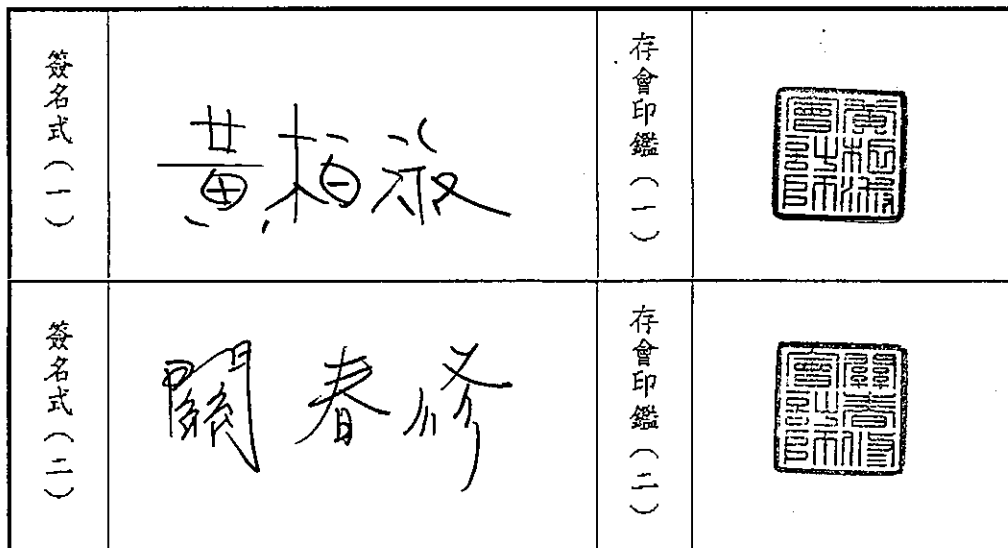 簽名式(一)
黃柏淑
存會印鑑(一)
黃柏淑會計師
簽名式(二)
關春修
存會印鑑(二)
關春修會計師